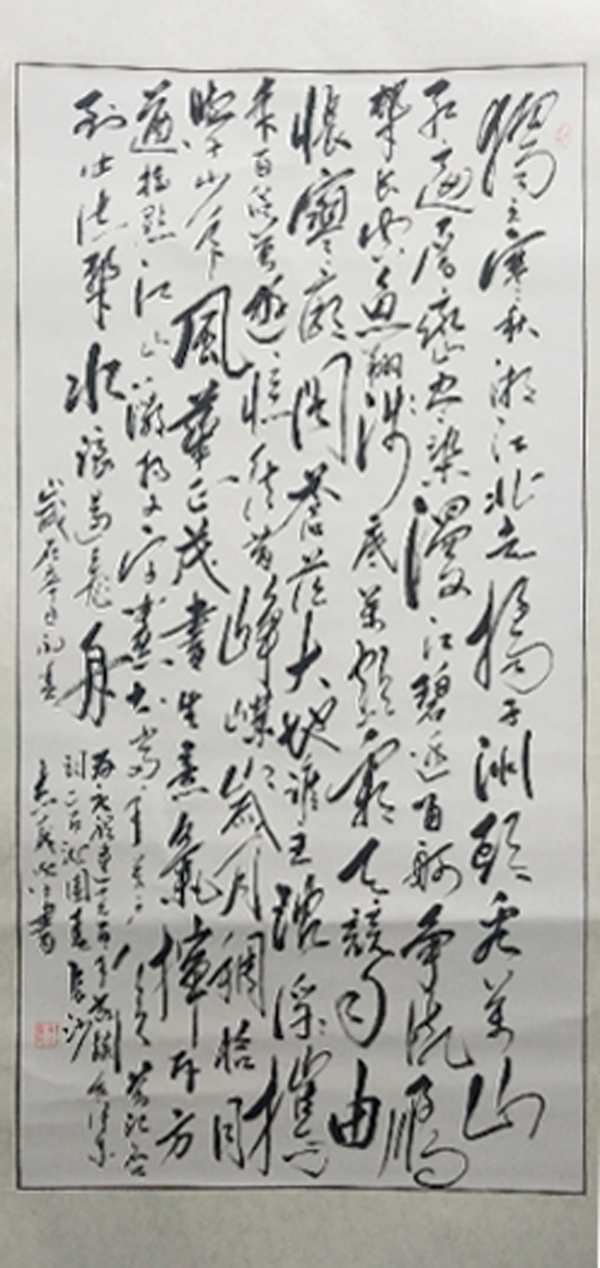 獨立寒秋湘江北去橘子洲頭看萬山
紅遍層林盡染漫江碧透百舸爭流鷹
擊長空魚翔淺底萬類霜天競自由
悵寥廓問蒼茫大地誰主沉浮攜
來百侶曾遊憶往昔崢嶸歲月稠恰同
學少年風華正茂書生意氣揮斥方
遒指點江山激揚文字糞土當年萬戶侯曾記否
到中流擊水浪遏飛舟
沁園春長沙